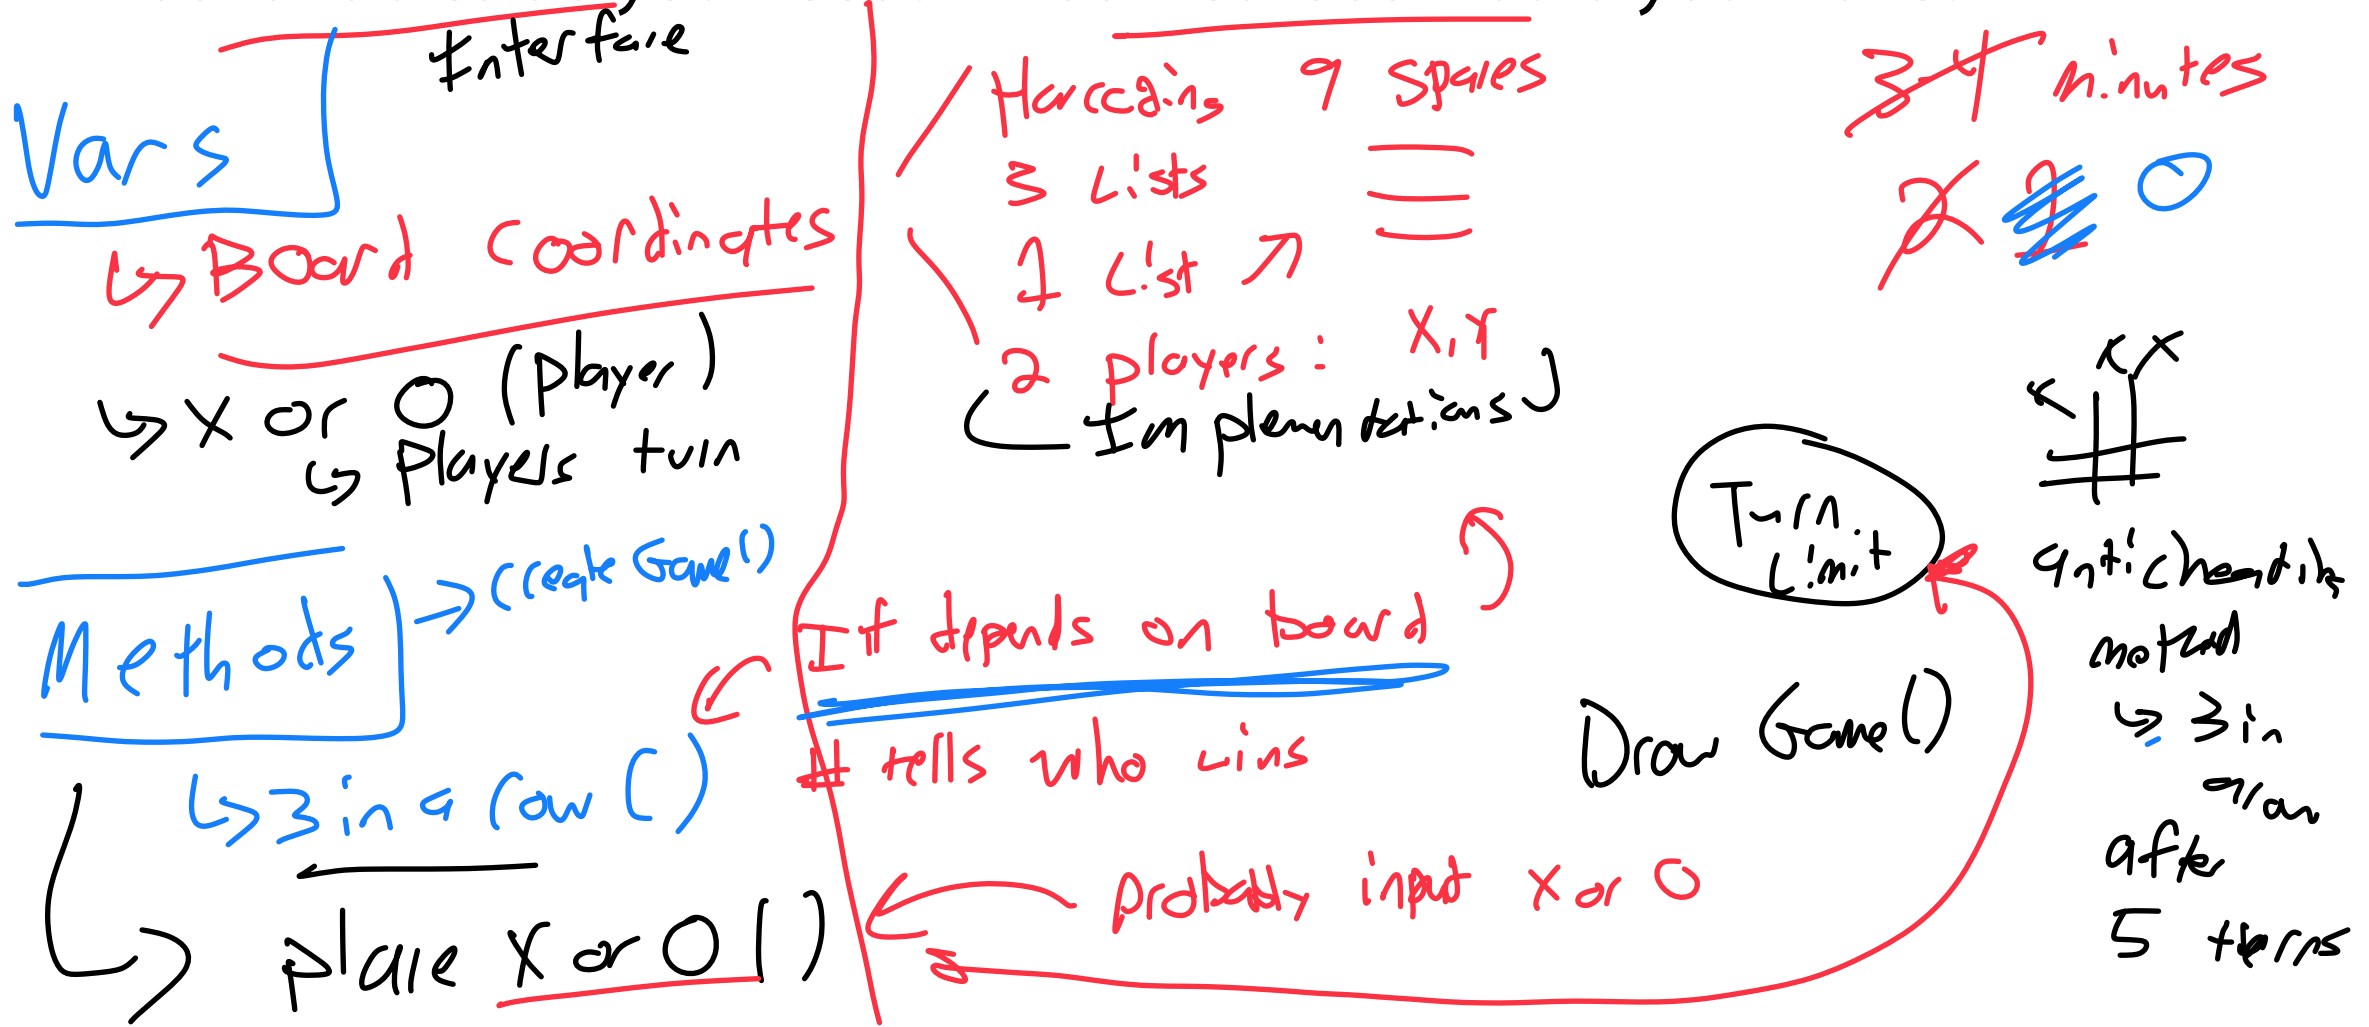 Interface
Vars
Board Coordinates
X or O (player)
players turn
Methods
create Game()
3 in a row()
place X or O()
9 spaces
3 Lists
1 List
2 players: X, Y
Implementations
It depends on board
# tells who wins
probably input X or O
3 4 minutes
2 1 0
X X
X
Turn
Limit
Draw Game()
method
3 in
a row
after
5 terns